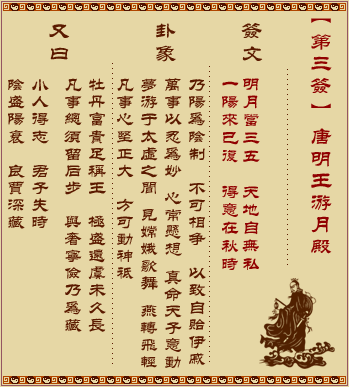 【第三簽】 唐明王游月殿
簽文
明月當三五 天地自無私
一陽來已復 得意在秋時
卦象
乃陽爲陰制 不可相爭 以致自貽伊戚
萬事以忍爲妙 心常懸想 真命天子意動
夢游于太虛之間 見嫦娥歌舞 燕轉飛輕
凡事心堅正大 方可動神祇
又曰
牡丹富貴足稱王 極盛還虞未久長
凡事總須留后步 與奢寧儉乃爲藏
小人得志 君子失時
陰盛陽衰 良賈深藏